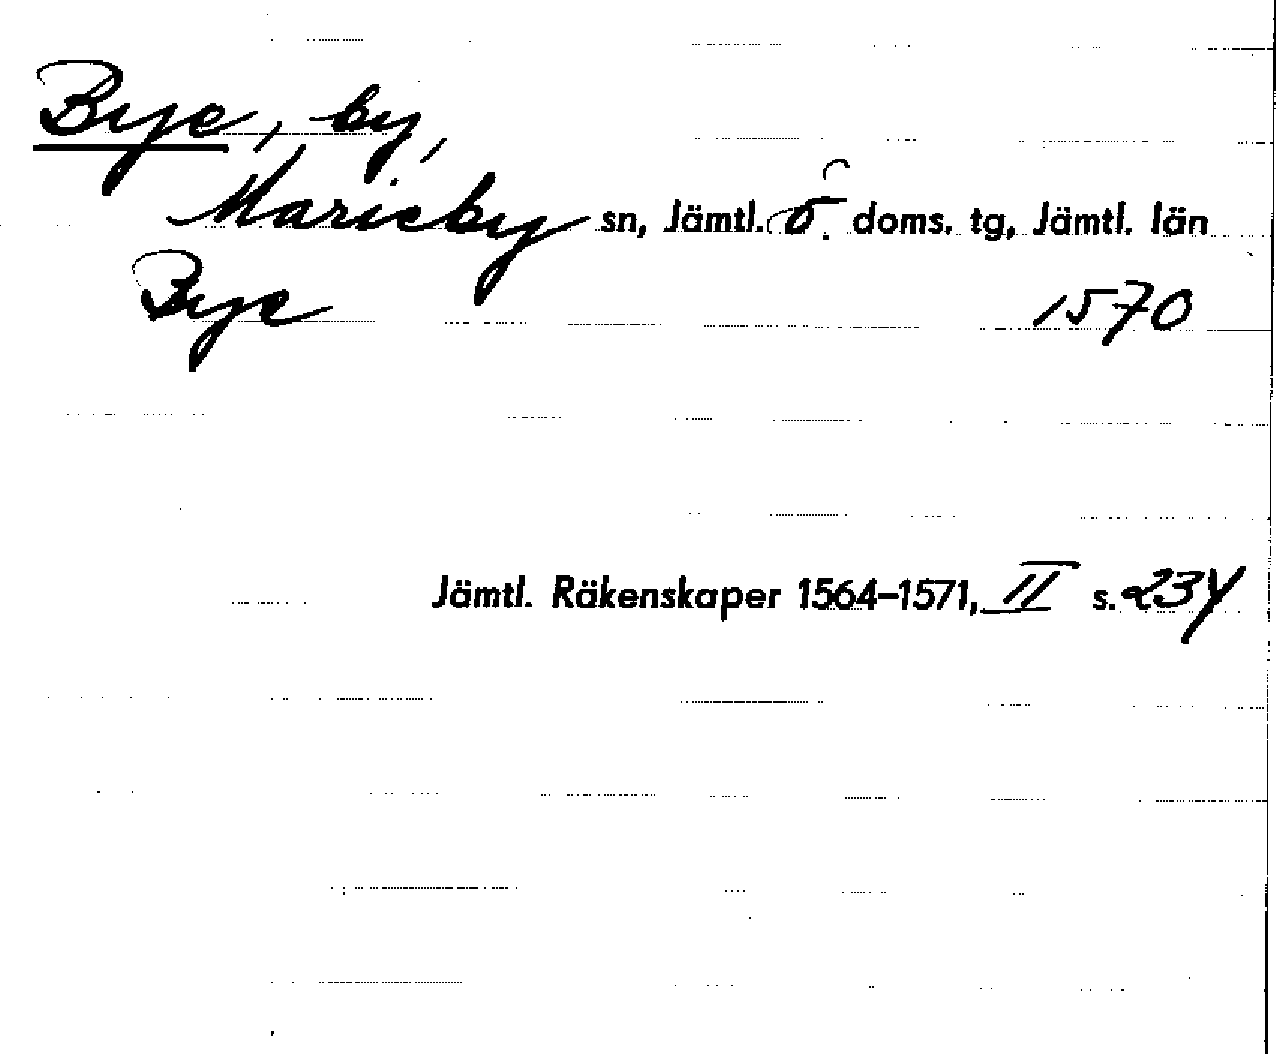 Bye, by,
Marieby sn, Jämtl. ö. doms. tg, Jämtl. län
Bye 1570
Jämtl. Räkenskaper 1564-1571, II s. 234